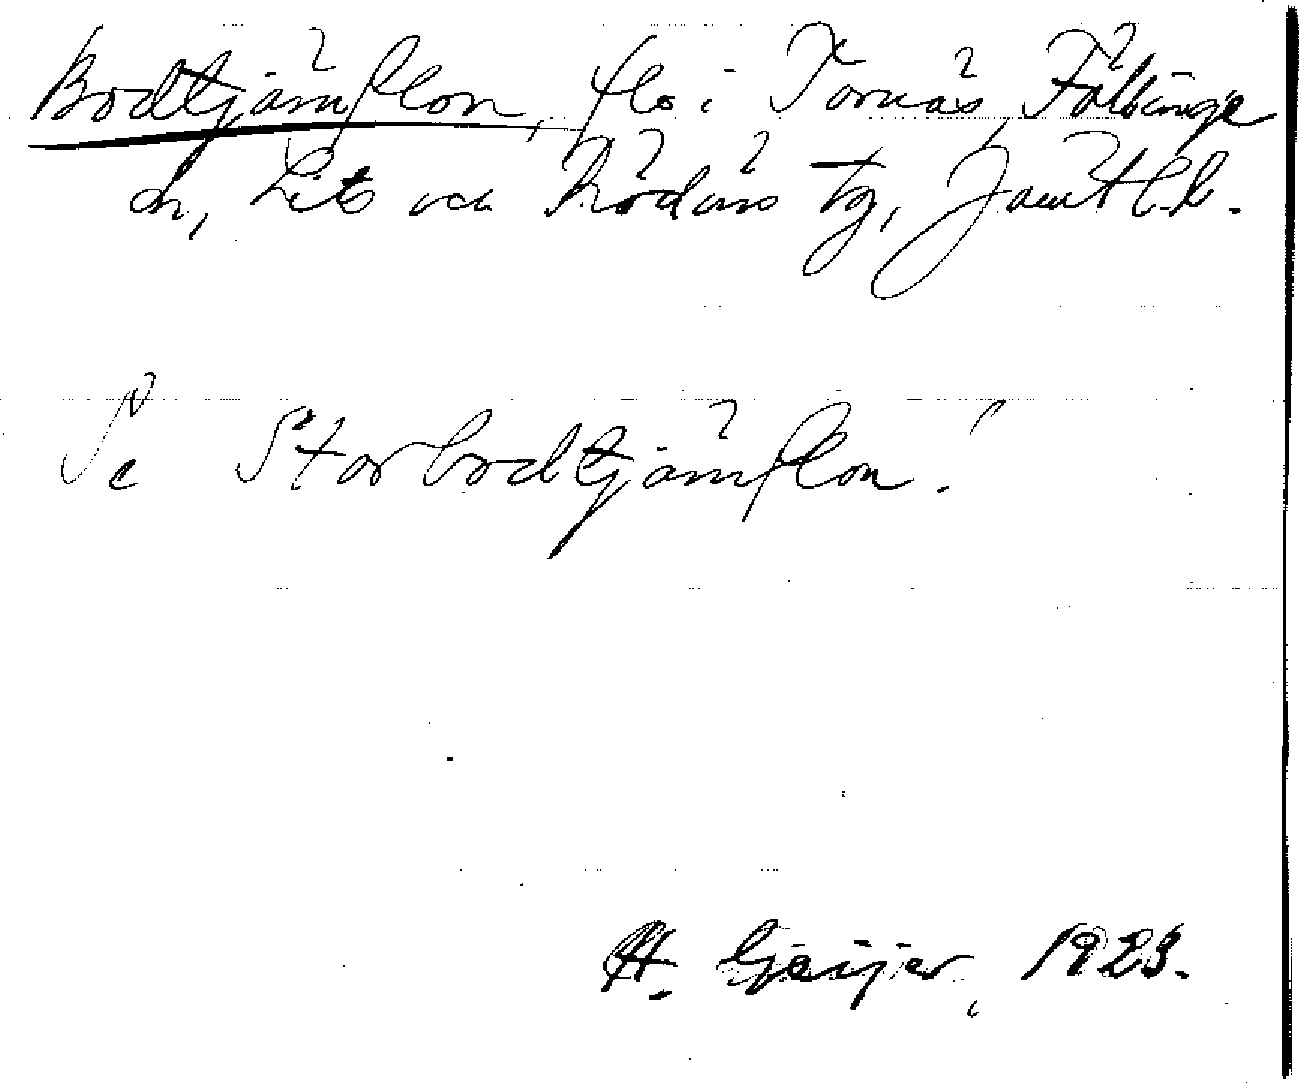 Bodtjärnflon, flo i Tornäs, Föllinge
sn, Lits och Rödöns tg, Jämtl. l.
Se Storbodtjärnflon!
H. Geijer, 1923.